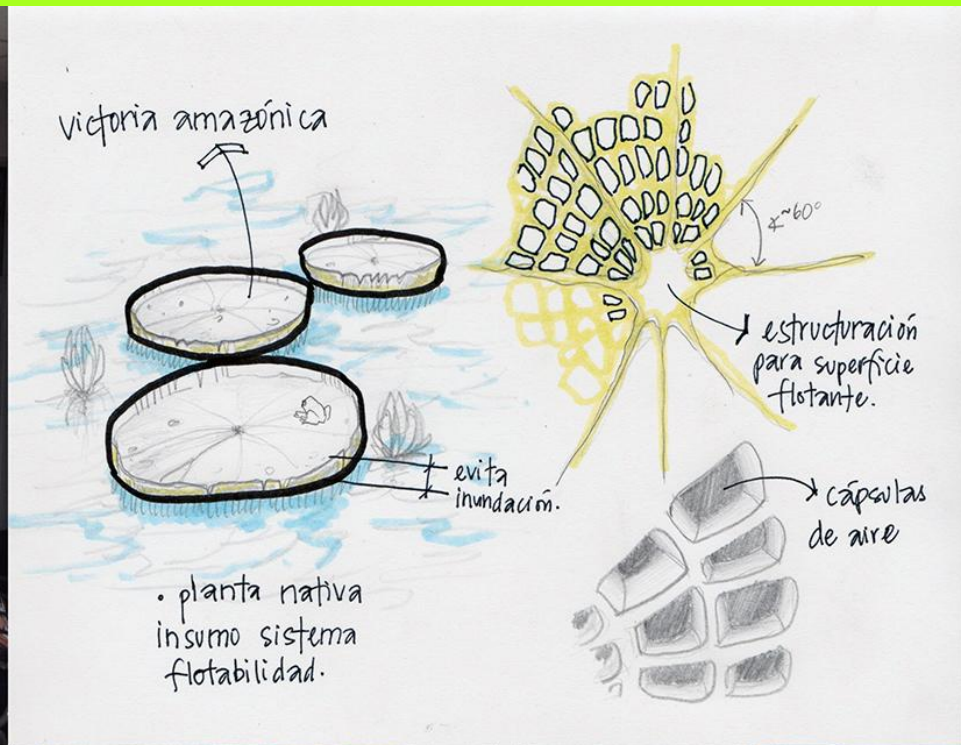 victoria amazónica
evita
inundación.
• planta nativa
insumo sistema
flotabilidad.
∡~60°
estructuración
para superficie
flotante.
cápsulas
de aire